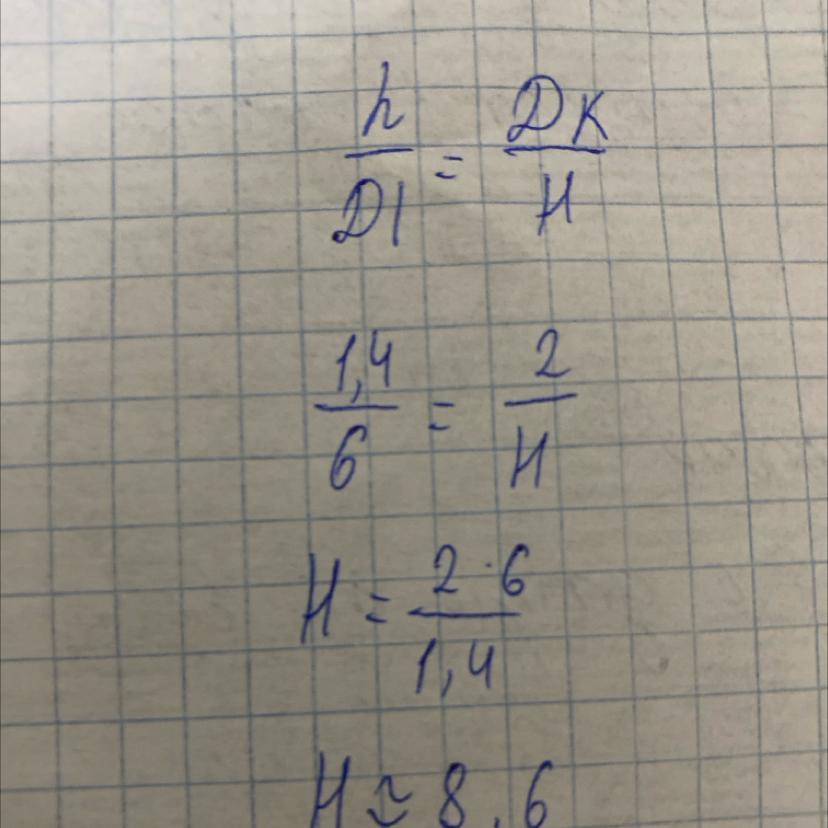 h/Dl = DK/H
1,4/6 = 2/H
H = 2·6/1,4
H ≈ 8,6